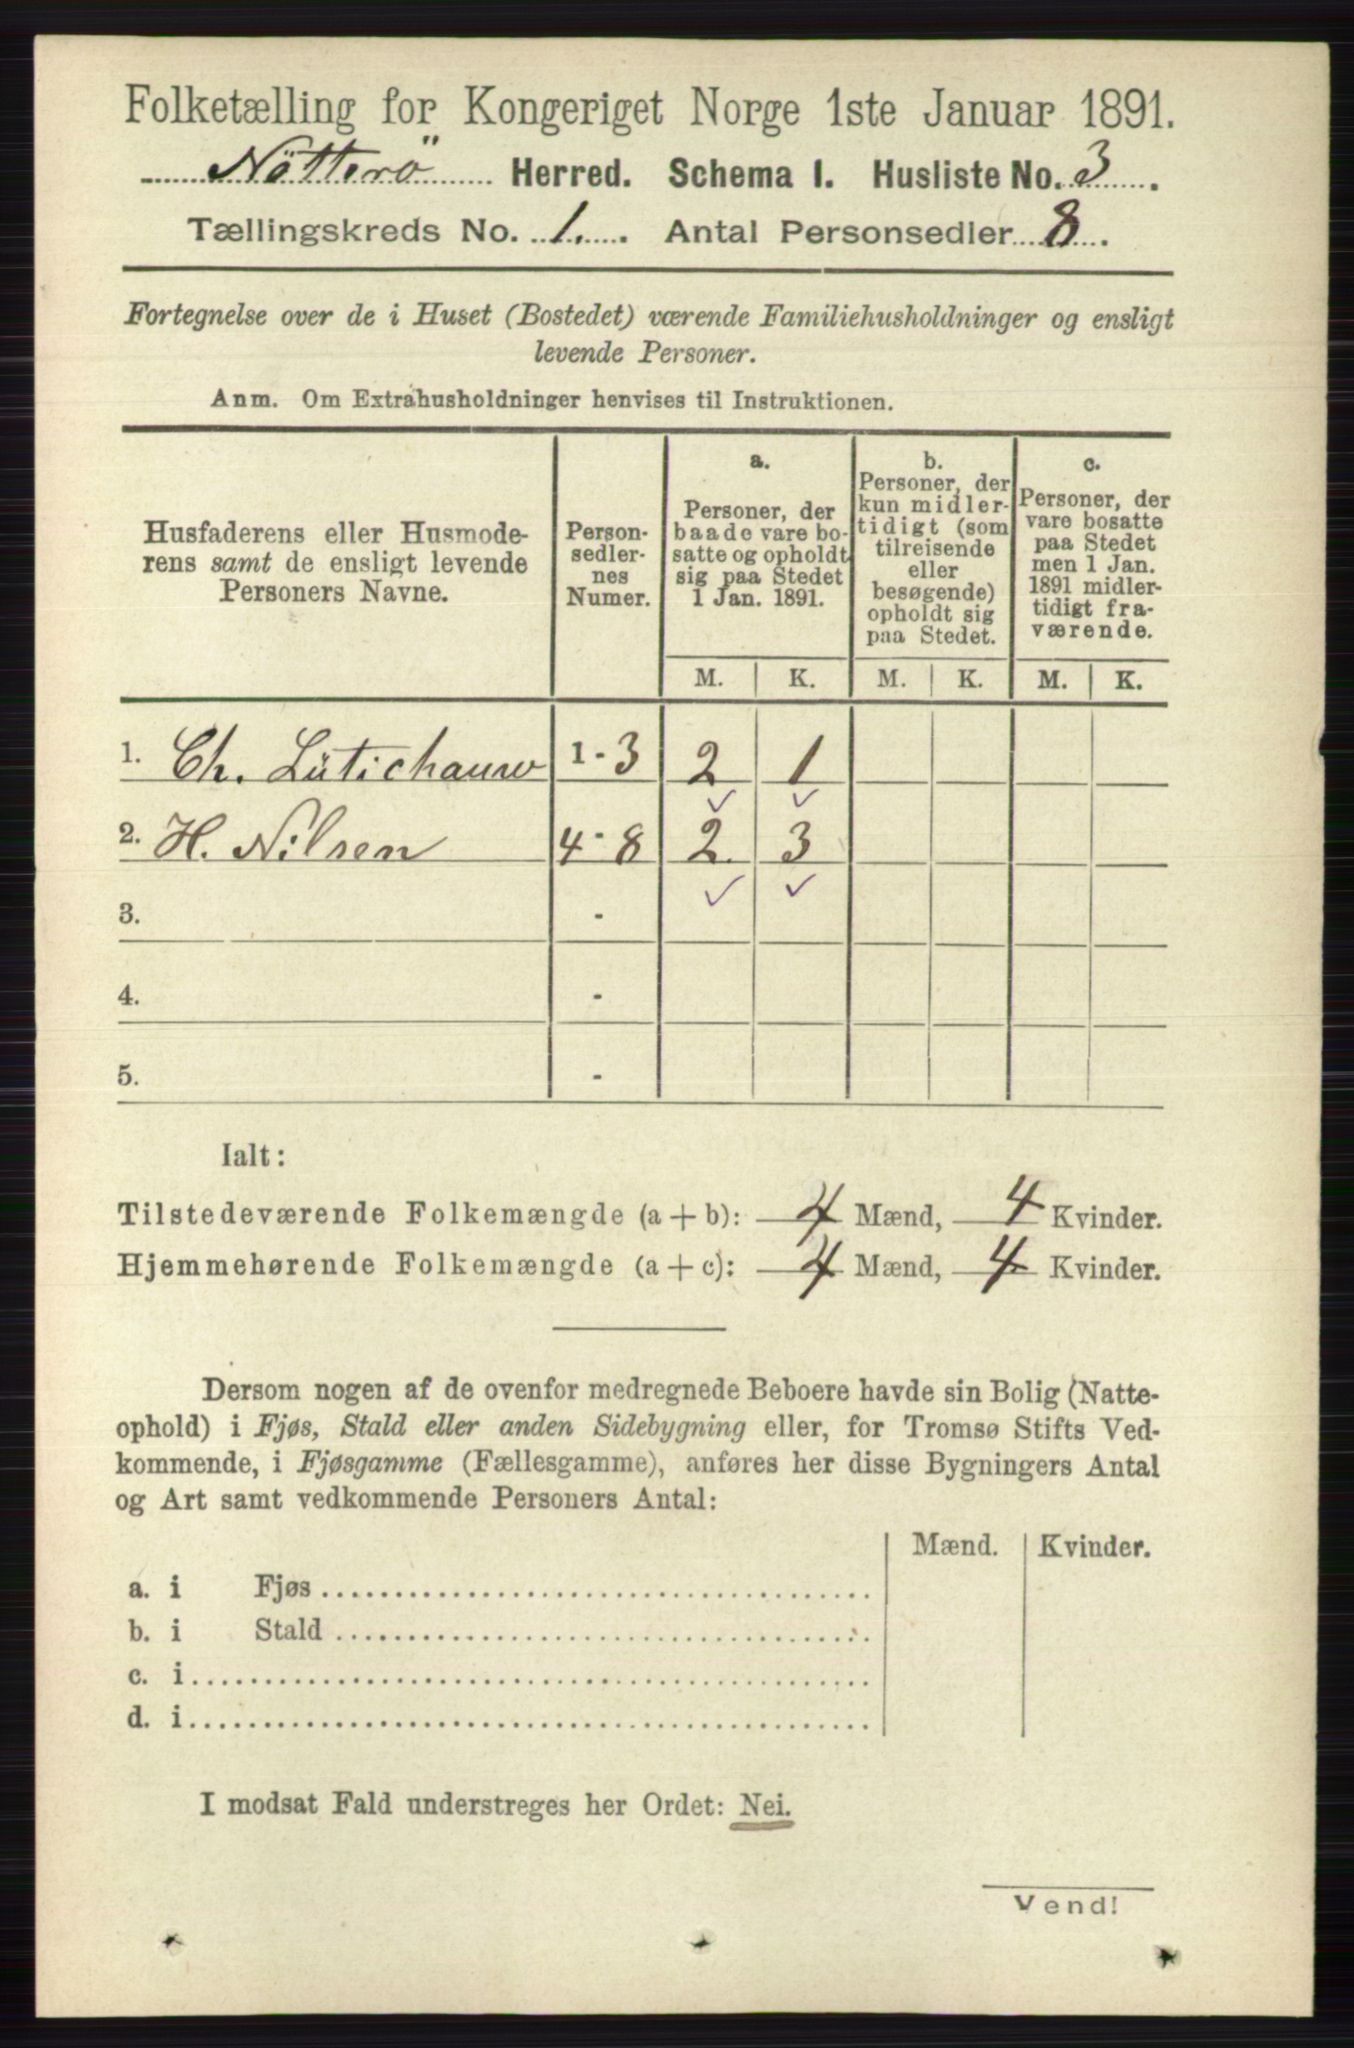 Folketælling for Kongeriget Norge 1ste Januar 1891.
Nötterö Herred. Schema I. Husliste No. 3.
Tællingskreds No. 1. Antal Personsedler 8.
Fortegnelse over de i Huset (Bostedet) værende Familiehusholdninger og ensligt
levende Personer.
Anm. Om Extrahusholdninger henvises til Instruktionen.
Husfaderens eller Husmode-
rens samt de ensligt levende
Personers Navne.
Person-
sedler-
nes
Numer.
a.
Personer, der
baade vare bo-
satte og opholdt
sig paa Stedet
1 Jan. 1891.
b.
Personer, der
kun midler-
tidigt (som
tilreisende
eller
besøgende)
opholdt sig
paa Stedet.
c.
Personer, der
vare bosatte
paa Stedet
men 1 Jan.
1891 midler-
tidigt fra-
værende.
M. K. M. K. M. K.
1. Ch. Lütichauw 1-3 2 1
2. H. Nilsen 4-8 2 3
3. -
4. -
5. -
Ialt:
Tilstedeværende Folkemængde (a + b): 4 Mænd, 4 Kvinder.
Hjemmehørende Folkemængde (a + c): 4 Mænd, 4 Kvinder.
Dersom nogen af de ovenfor medregnede Beboere havde sin Bolig (Natte-
ophold) i Fjøs, Stald eller anden Sidebygning eller, for Tromsø Stifts Ved-
kommende, i Fjøsgamme (Fællesgamme), anføres her disse Bygningers Antal
og Art samt vedkommende Personers Antal:
Mænd. Kvinder.
a. i Fjøs
b. i Stald
c. i
d. i
I modsat Fald understreges her Ordet: Nei.
Vend!